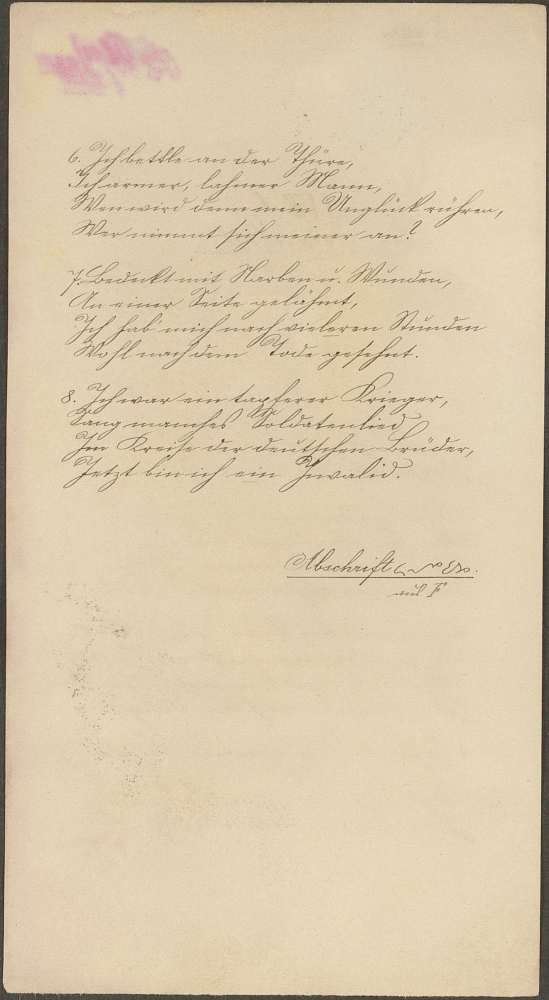 6. Ich bettle an der Thüre,
Ich armer, lahmer Mann,
Wen wird denn mein Unglück rühren,
Wer nimmt sich meiner an?
7. Bedeckt mit Narben u. Wunden,
An einer Seite gelähmt,
Ich hab' mich nach vieleren Stunden
Wohl nach dem Tode gesehnt.
8. Ich war ein tapferer Krieger,
Sang manches Soldatenlied
Im Kreise der deutschen Brüder,
Jetzt bin ich ein Invalid.
Abschrift
aus F